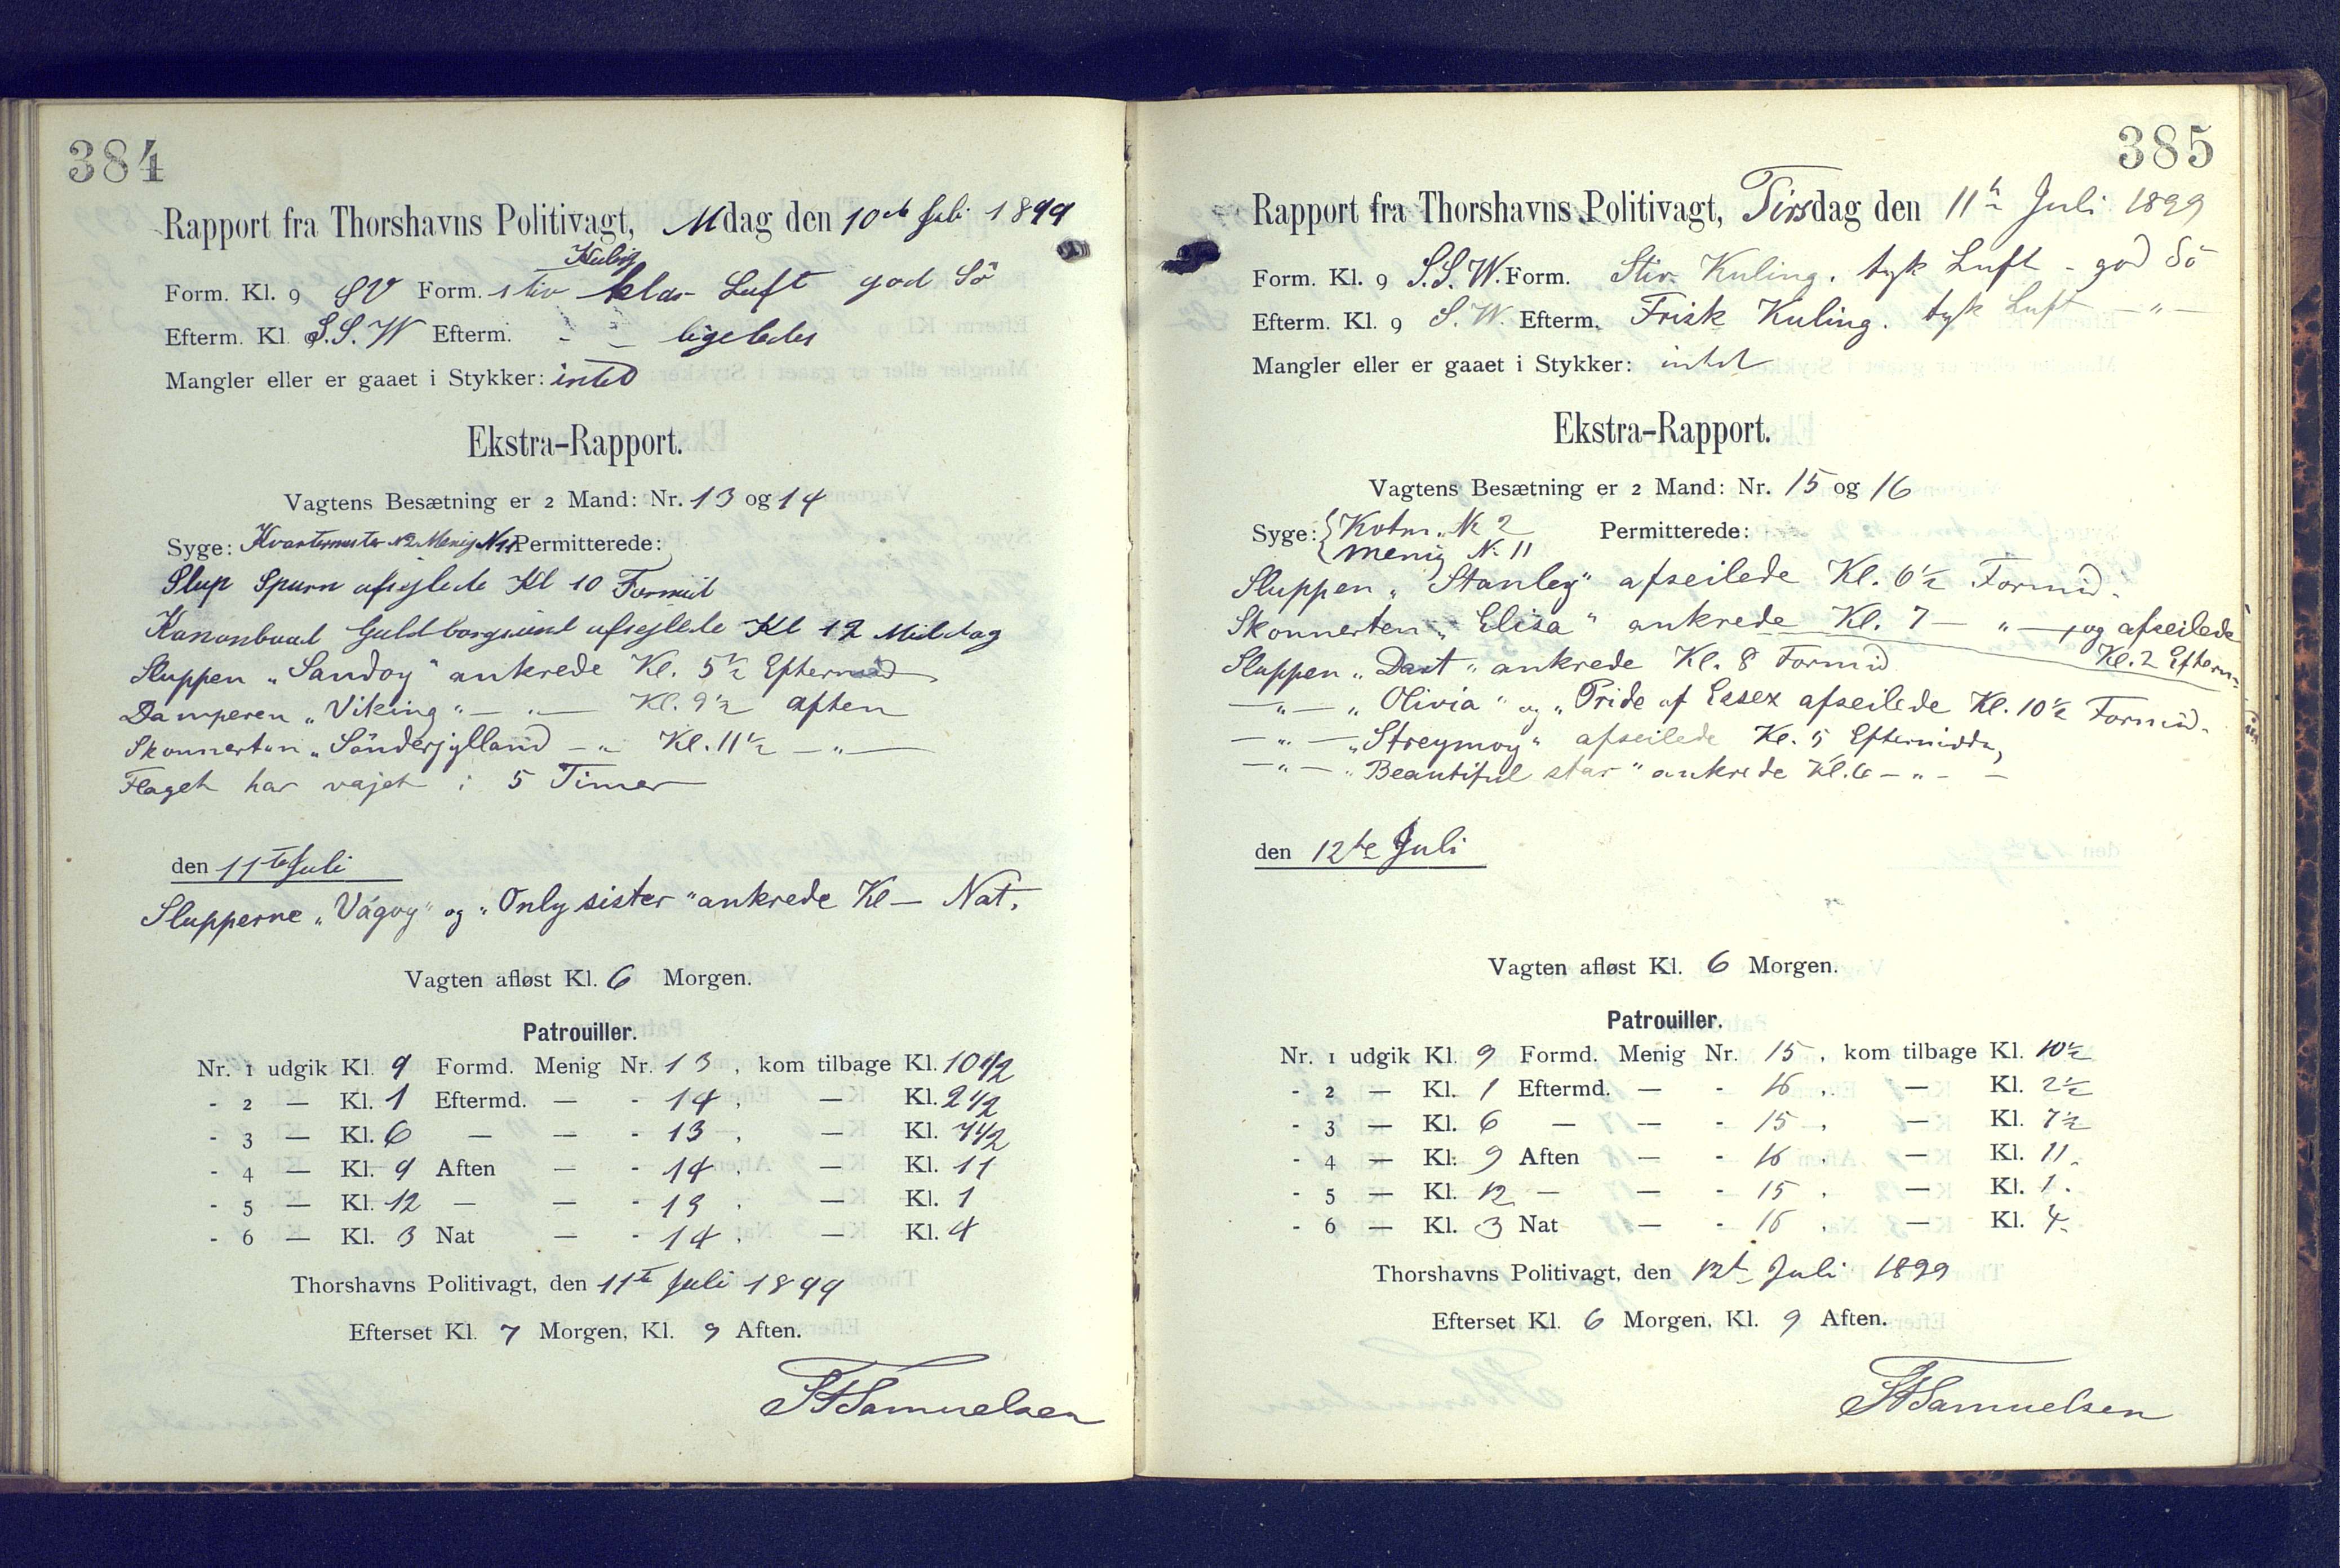 384
Rapport fra Thorshavns Politivagt, Mdag den 10de Juli 1899
Kuling
Form. Kl. 9 SV Form. stiv klar Luft god Sö
Efterm. Kl. S.S.W Efterm. - - ligeledes
Mangler eller er gaaet i Stykker: intet
Ekstra-Rapport.
Vagtens Besætning er 2 Mand: Nr. 13 og 14
Syge: Kvartermester N2 Menig N 11 Permitterede:
Slup Spurn afsejlede Kl 10 Formid
Kanonbaad Guldborgsund afsejlede Kl 12 Middag
Sluppen „Sandoy" ankrede Kl. 5½ Eftermid
Damperen „Viking" — „ — Kl. 9½ aften
Skonnerten „Sönderjylland — „ Kl. 11½ — „ —
Flaget har vajet i 5 Timer
den 11te Juli
Slupperne „Vágoy" og „Only sister" ankrede Kl — Nat.
Vagten afløst Kl. 6 Morgen.
Patrouiller.
Nr. 1 udgik Kl. 9 Formd. Menig Nr. 13, kom tilbage Kl. 10 1/2
- 2 — Kl. 1 Eftermd. — - 14, — Kl. 2 1/2
- 3 — Kl. 6 — — - 13, — Kl. 7 1/2
- 4 — Kl. 9 Aften — - 14, — Kl. 11
- 5 — Kl. 12 — — - 13, — Kl. 1
- 6 — Kl. 3 Nat — - 14, — Kl. 4
Thorshavns Politivagt, den 11te Juli 1899
Efterset Kl. 7 Morgen, Kl. 9 Aften.
Samuelsen
385
Rapport fra Thorshavns Politivagt, Tirsdag den 11te Juli 1899
Form. Kl. 9 S.S.W. Form. Stiv Kuling. tyk Luft - god Sö
Efterm. Kl. 9 S.W. Efterm. Frisk Kuling. tyk Luft — „ —
Mangler eller er gaaet i Stykker: intet
Ekstra-Rapport.
Vagtens Besætning er 2 Mand: Nr. 15 og 16
Syge: Kvtm. N 2 Permitterede:
Menig N. 11
Sluppen „Stanley" afseilede Kl. 6½ Formid.
Skonnerten „Elisa" ankrede Kl. 7 — „ —, og afseilede
Kl. 2 Efterm
Sluppen „Dart" ankrede Kl. 8 Formid
— „ — „Olivia" og „Pride of Essex afseilede Kl. 10½ Formid.
— „ — „Streymoy" afseilede Kl. 5 Eftermidda
— „ — „Beautiful star" ankrede Kl. 6 — „ — —
den 12te Juli
Vagten afløst Kl. 6 Morgen.
Patrouiller.
Nr. 1 udgik Kl. 9 Formd. Menig Nr. 15, kom tilbage Kl. 10½
- 2 — Kl. 1 Eftermd. — - 16, — Kl. 2½
- 3 — Kl. 6 — — - 15, — Kl. 7½
- 4 — Kl. 9 Aften — - 16, — Kl. 11.
- 5 — Kl. 12 — — - 15, — Kl. 1.
- 6 — Kl. 3 Nat — - 16, — Kl. 4.
Thorshavns Politivagt, den 12te Juli 1899
Efterset Kl. 6 Morgen, Kl. 9 Aften.
Samuelsen